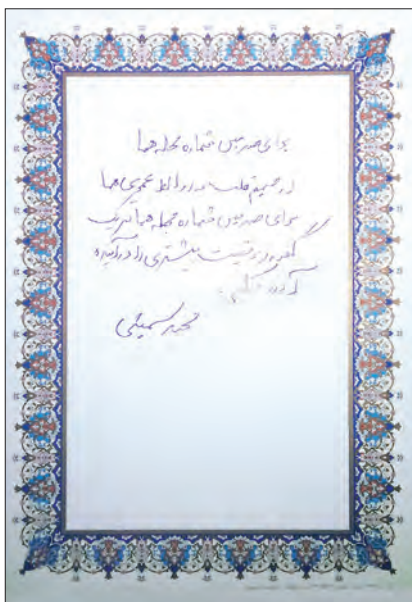 برای صدمین شماره مجله هما
از صمیم قلب به روابط عمومی هما
برای صدمین شماره مجله هما تبریک
گفته و موفقیت بیشتری را در آینده
آرزو میکنم.